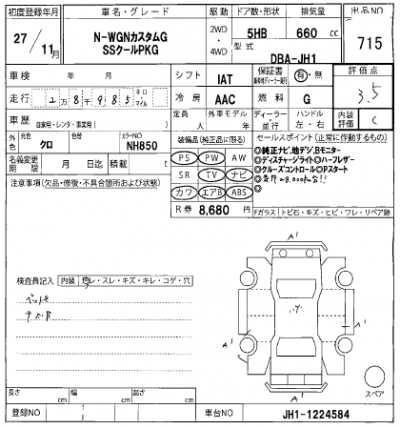 初度登録年月 車名・グレード 駆動 ドア数・形状 排気量 出品NO
27/11月 N-WGNカスタムG SSクールPKG 2WD・4WD 5HB 660 cc 715
型式 DBA-JH1
車検 年 月 シフト IAT 保証書 有・無 評価点
走行 2万8985 キロ マイル 冷房 AAC 燃料 G 3.5
車歴 自家用・レンタ・事業用( ) 定員 人 外車モデル 年 ディーラー 並行 ハンドル 左・右 内装評価 C
外色 元色 クロ カラーNO NH850 装備品(純正品に限る) セールスポイント(正常に作動するもの)
PS PW AW
◎純正ナビ,地デジ,Bモニター
◎ディスチャージライト◎ハーフレザー
名義変更期限 月 日迄 積載 t SR TV ナビ
◎クルーズコントロール◎Pスタート
注意事項(欠品・修復・不具合箇所および状態) カワ エアB ABS
R券 8,680 円 Fガラス トビ石・キズ・ヒビ・ワレ・リペア跡
A'
検査員記入 内装 スレ・キズ・キレ・コゲ・穴
A'
A'
A'
スペア
長さ cm 幅 cm 高さ cm
登録NO 車台NO JH1-1224584